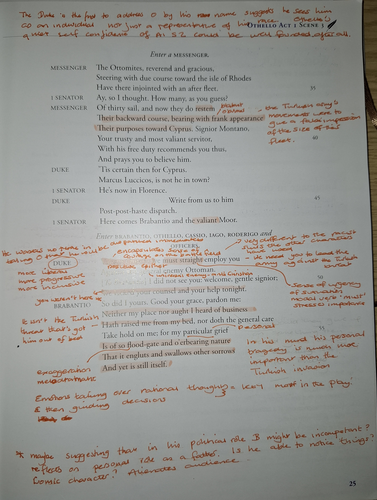 The Duke is the first to address O by his name suggests he sees him
as an individual not just a representative of his race. Othello's
quiet self confidence of A1 S2 could be well founded after all.
OTHELLO ACT 1 SCENE 3
Enter a MESSENGER.
MESSENGER The Ottomites, reverend and gracious,
Steering with due course toward the isle of Rhodes
Have there injointed with an after fleet. 35
1 SENATOR Ay, so I thought. How many, as you guess?
MESSENGER Of thirty sail, and now they do restem
Their backward course, bearing with frank appearance
Their purposes toward Cyprus. Signior Montano,
Your trusty and most valiant servitor, 40
With his free duty recommends you thus
And prays you to believe him.
DUKE 'Tis certain then for Cyprus.
Marcus Luccicos, is not he in town?
1 SENATOR He's now in Florence.
DUKE Write from us to him 45
Post-post-haste dispatch.
1 SENATOR Here comes Brabantio and the valiant Moor.
- the Turkish army's
movements were to
give a false impression
of the size of their
fleet.
Enter BRABANTIO, OTHELLO, CASSIO, IAGO, RODERIGO and
OFFICERS.
DUKE
must straight employ you
enemy Ottoman.
I did not see you: welcome, gentle signior;
counsel and your help tonight.
BRABANTIO So did I yours. Good your grace, pardon me:
Neither my place nor aught I heard of business
Hath raised me from my bed, nor doth the general care
Take hold on me; for my particular grief 55
Is of so flood-gate and o'erbearing nature
That it engluts and swallows other sorrows
And yet is still itself.
very different to the
the other characters
- we need you to leave the
army against the Turkish
Sense of urgency
modal verb 'must'
stresses importance
more liberal
more progressive
more inclusive
you weren't here
It isn't the Turkish
threat that's got
him out of bed
personal
In his mind his personal
tragedy is much more
important than the
Turkish invasion
exaggeration
melodramatic
Emotions taking over rational thoughts = key motif in the play
& then guiding decisions
* maybe suggesting that in his political role B might be incompetent?
reflects on personal role as a father. Is he able to notice things?
Comic character? Alienates audience
25